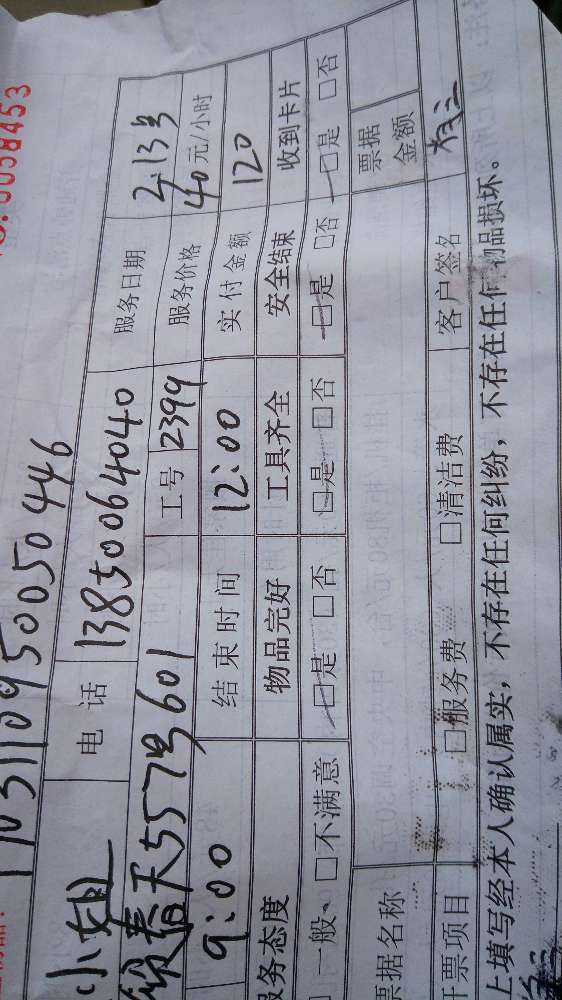 0058453
170311095005044​6
小姐 电话 13850064040 服务日期 2.13号
春天557号601 工号 2399 服务价格 40元/小时
9:00 结束时间 12:00 实付金额 120
服务态度 物品完好 工具齐全 安全结束 收到卡片
一般、 □不满意 □是 □否 □是 □否 □是 □否 □是 □否
票据名称 票据金额
开票项目 □服务费 □清洁费 客户签名
上填写经本人确认属实，不存在任何纠纷，不存在任何物品损坏。